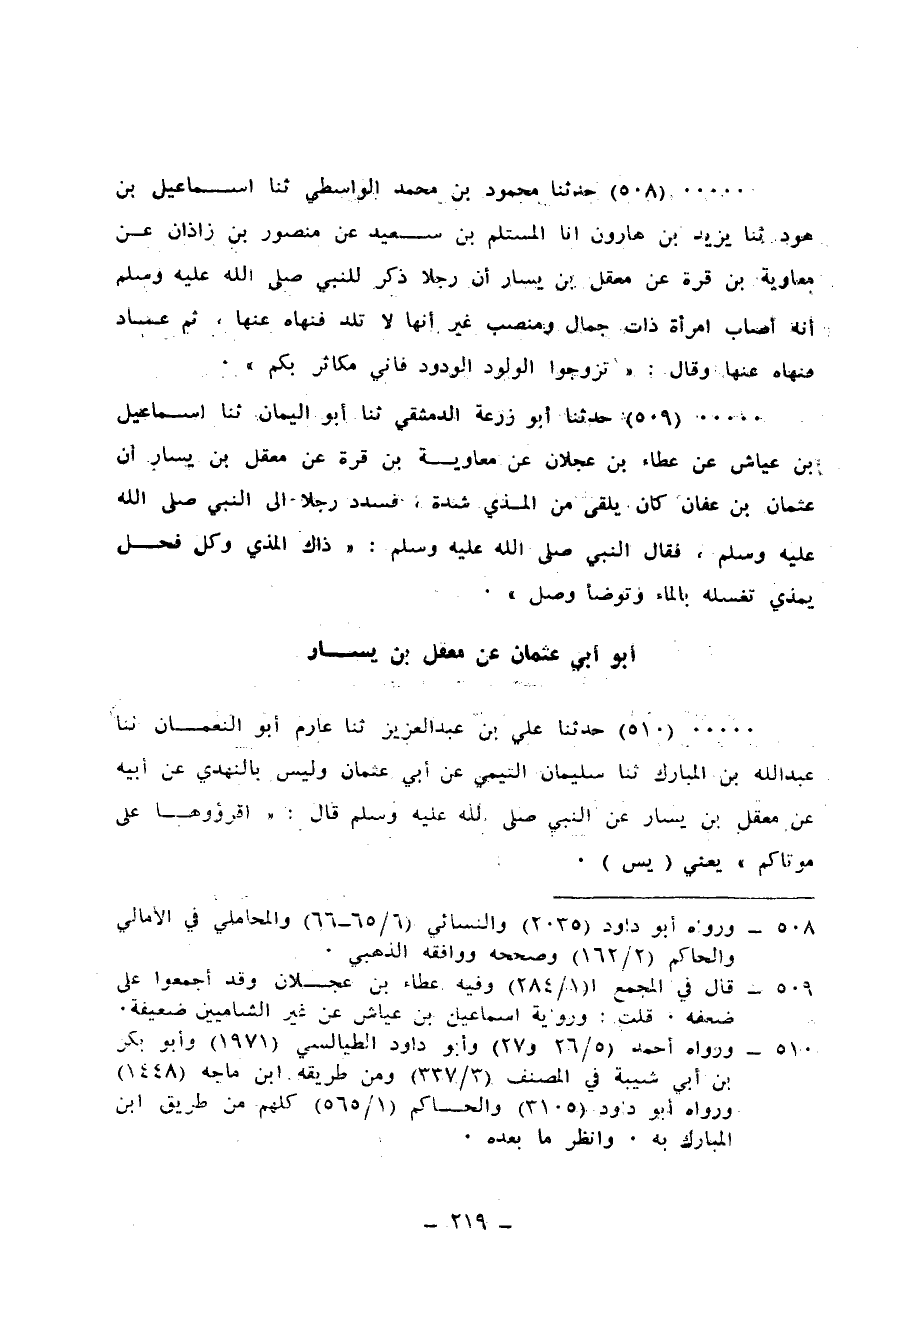 ٠٠٠٠٠ (٥٠٨) حدثنا محمود بن محمد الواسطي ثنا اسماعيل بن
هود ثنا يزيد بن هارون انا المستلم بن سعيد عن منصور بن زاذان عن
معاوية بن قرة عن معقل بن يسار أن رجلا ذكر للنبي صلى الله عليه وسلم
أنه أصاب امرأة ذات جمال ومنصب غير أنها لا تلد فنهاه عنها ، ثم عاد
فنهاه عنها وقال : « تزوجوا الولود الودود فاني مكاثر بكم » ٠
٠٠٠٠٠ (٥٠٩) حدثنا أبو زرعة الدمشقي ثنا أبو اليمان ثنا اسماعيل
بن عياش عن عطاء بن عجلان عن معاوية بن قرة عن معقل بن يسار أن
عثمان بن عفان كان يلقى من المذي شدة ، فسدد رجلا الى النبي صلى الله
عليه وسلم ، فقال النبي صلى الله عليه وسلم : « ذاك المذي وكل فحل
يمذي تغسله بالماء وتوضأ وصل » ٠
أبو أبي عثمان عن معقل بن يسار
٠٠٠٠٠ (٥١٠) حدثنا علي بن عبدالعزيز ثنا عارم أبو النعمان ثنا
عبدالله بن المبارك ثنا سليمان التيمي عن أبي عثمان وليس بالنهدي عن أبيه
عن معقل بن يسار عن النبي صلى الله عليه وسلم قال : « اقرؤوها على
موتاكم » يعني ( يس ) ٠
٥٠٨ – ورواه أبو داود (٢٠٣٥) والنسائي (٦/٦٥–٦٦) والمحاملي في الأمالي
والحاكم (٢/١٦٢) وصححه ووافقه الذهبي ٠
٥٠٩ – قال في المجمع (١/٢٨٤) وفيه عطاء بن عجلان وقد أجمعوا على
ضعفه ٠ قلت : ورواية اسماعيل بن عياش عن غير الشاميين ضعيفة ٠
٥١٠ – ورواه أحمد (٥/٢٦ و٢٧) وأبو داود الطيالسي (١٩٧١) وأبو بكر
بن أبي شيبة في المصنف (٣/٢٣٧) ومن طريقه ابن ماجه (١٤٤٨)
ورواه أبو داود (٣١٠٥) والحاكم (١/٥٦٥) كلهم من طريق ابن
المبارك به ٠ وانظر ما بعده ٠
– ٢١٩ –